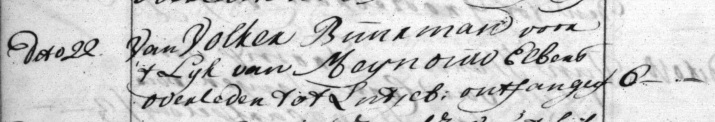 Deto 22. Van Volken Buurman voor
't Lyk van Meynouw Elbens
overleden tot Lutjeb: ontfangen 6 - -